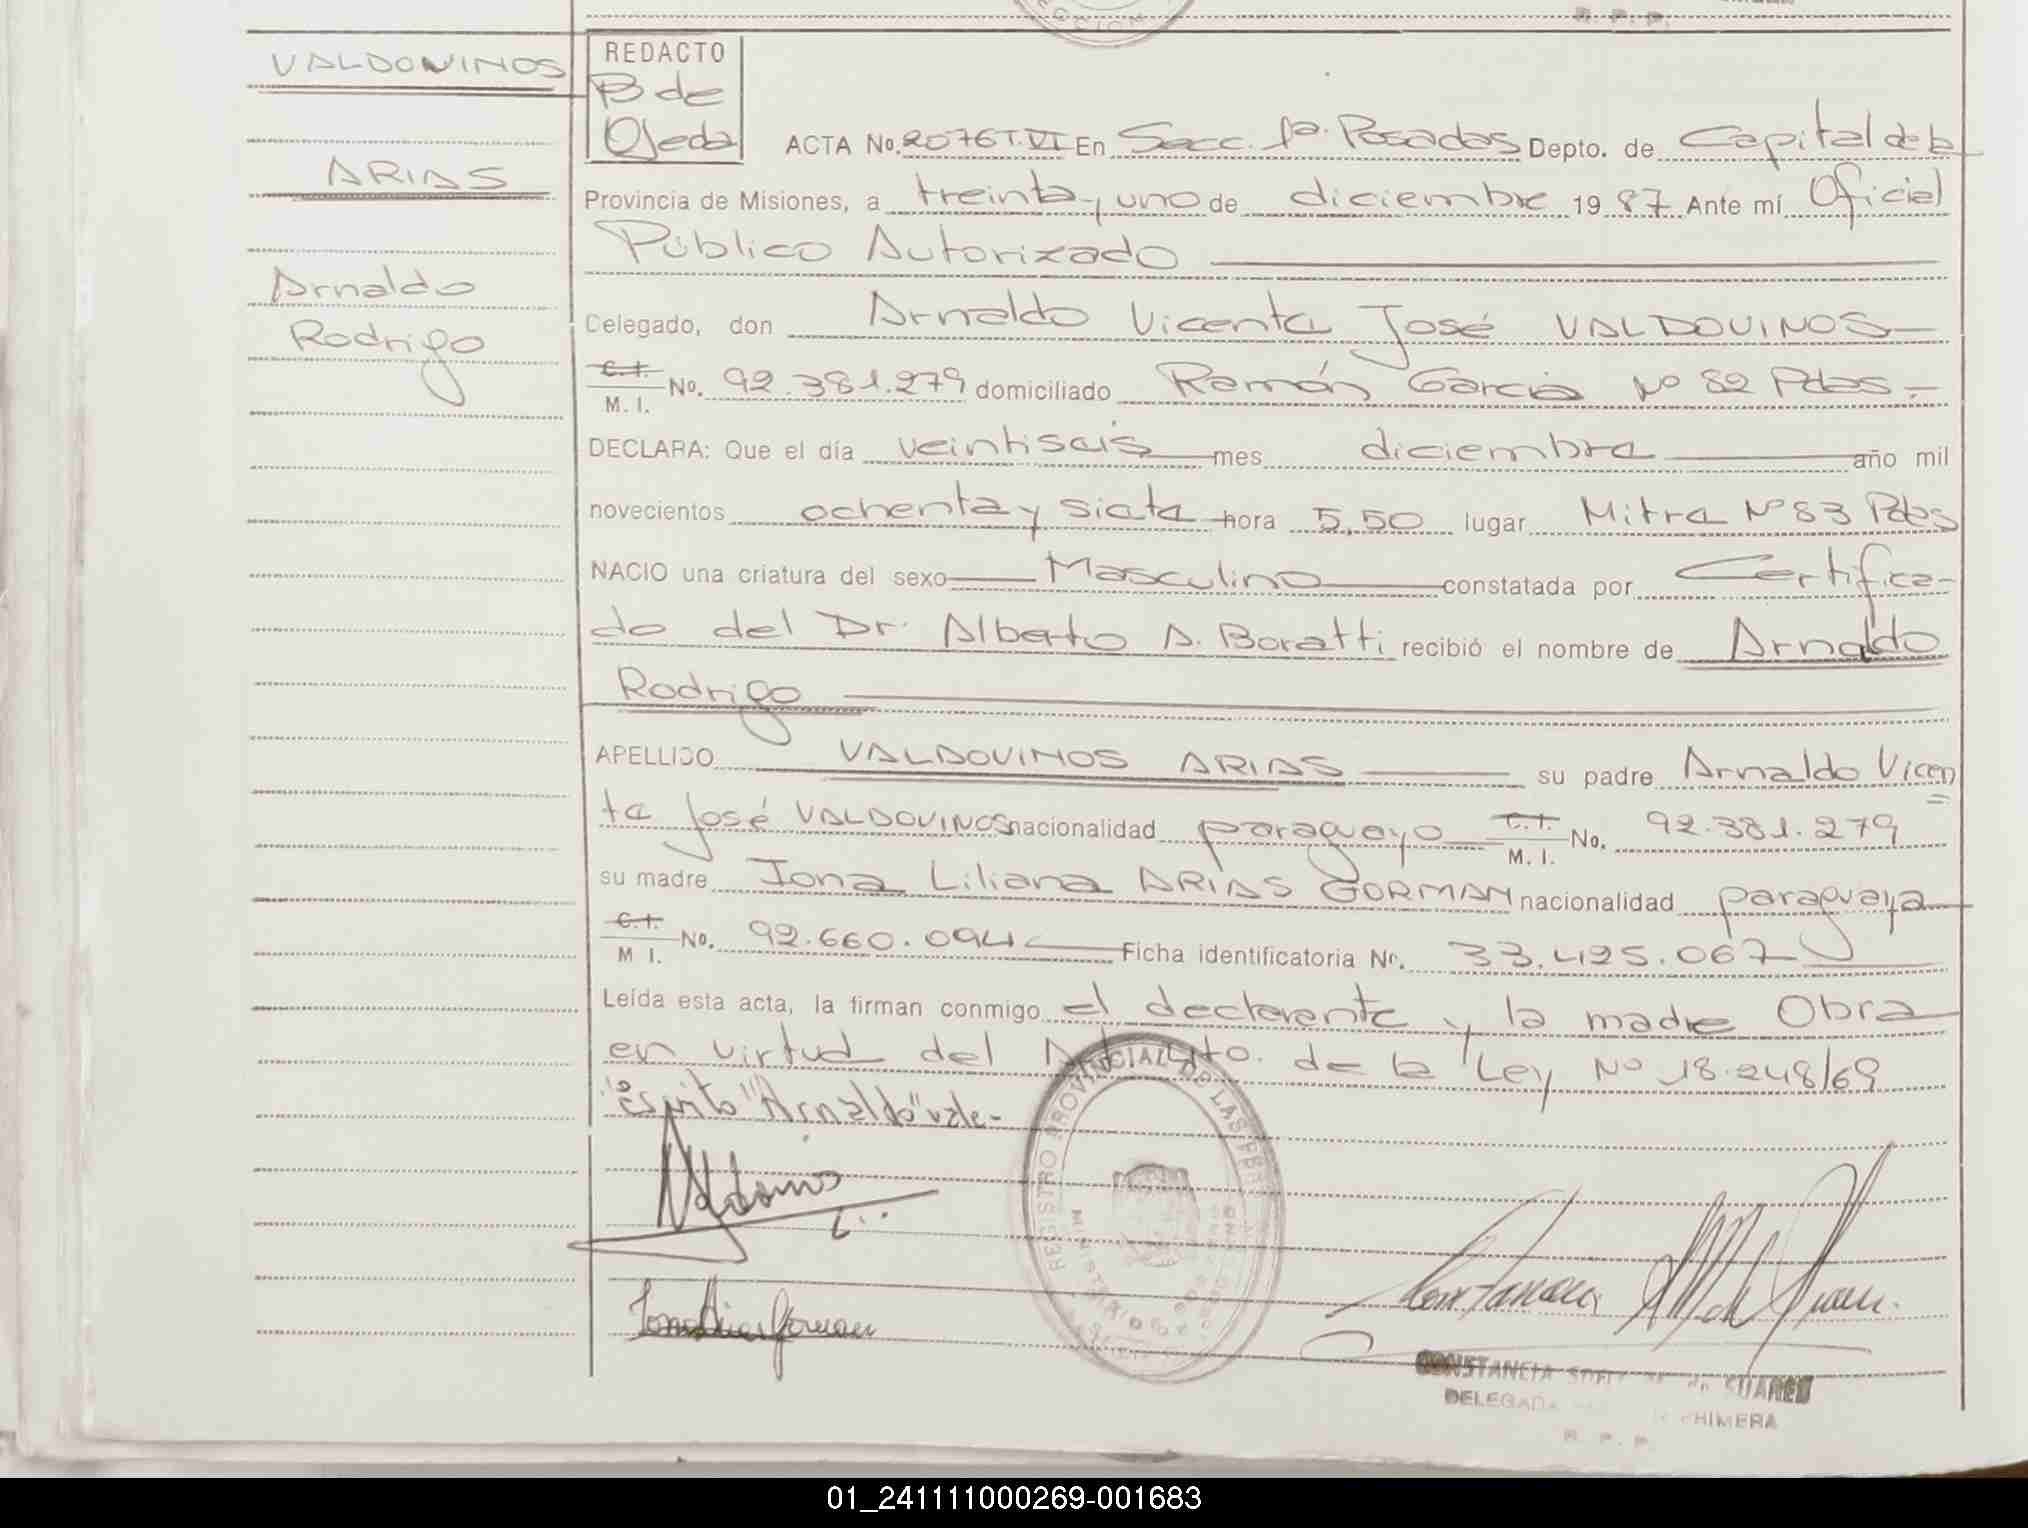 R. P. P.
ECCION
VALDOVINOS
ARIAS
Arnaldo
Rodrigo
REDACTO
B de
Ojeda
ACTA No. 2076 T. VI En Secc. 1a. Posadas Depto. de Capital de la
Provincia de Misiones, a treinta y uno de diciembre 1987 Ante mí Oficial
Público Autorizado
Delegado, don Arnaldo Vicente José VALDOVINOS
C.I. M. I. No. 92.381.279 domiciliado Ramón Garcia No 82 Pdas.-
DECLARA: Que el día veintiseis mes diciembre año mil
novecientos ochenta y siete hora 5,50 lugar Mitre Nº 83 Pdas
NACIO una criatura del sexo Masculino constatada por Certifica-
do del Dr. Alberto A. Boratti recibió el nombre de Arnaldo
Rodrigo
APELLIDO VALDOVINOS ARIAS su padre Arnaldo Vicen
te José VALDOVINOS nacionalidad paraguayo C.I. M. I. No. 92.381.279
su madre Iona Liliana ARIAS GORMAN nacionalidad paraguaya
C.I. M I. No. 92.660.094 Ficha identificatoria No. 33.425.067
Leída esta acta, la firman conmigo el declarente y la madre Obra
en virtud del de la Ley Nº 18.248/69
"Arnaldo" vale-
REGISTRO PROVINCIAL DE LAS
CONSTANCIA de SUAREZ
DELEGADA PRIMERA
R. P. P.
01_241111000269-001683